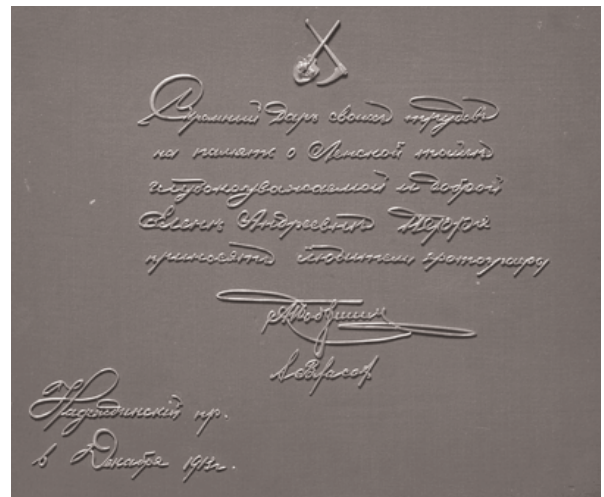 Скромный Даръ своихъ трудовъ
на память о Ленской тайгѣ
глубокоуважаемой и доброй
Еленѣ Андреевнѣ
приносятъ любители фотографы
А. Власов
Надеждинскій пр.
6 Декабря 1913г.